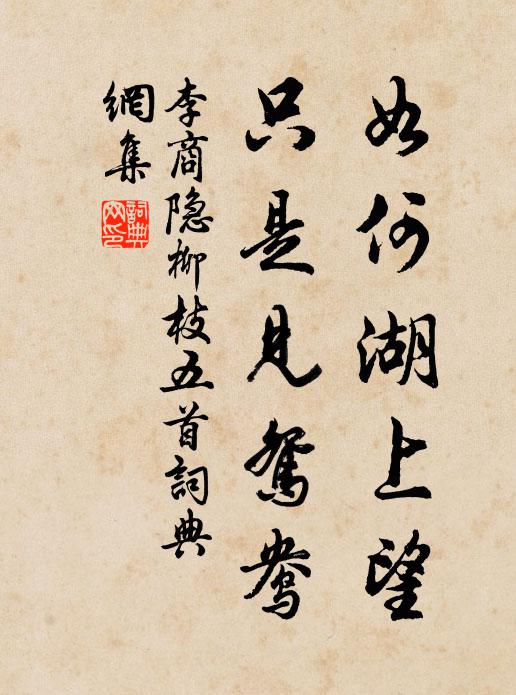 如何湖上望
只是見鴛鴦
李商隐柳枝五首詞典
網集
詞典
网印